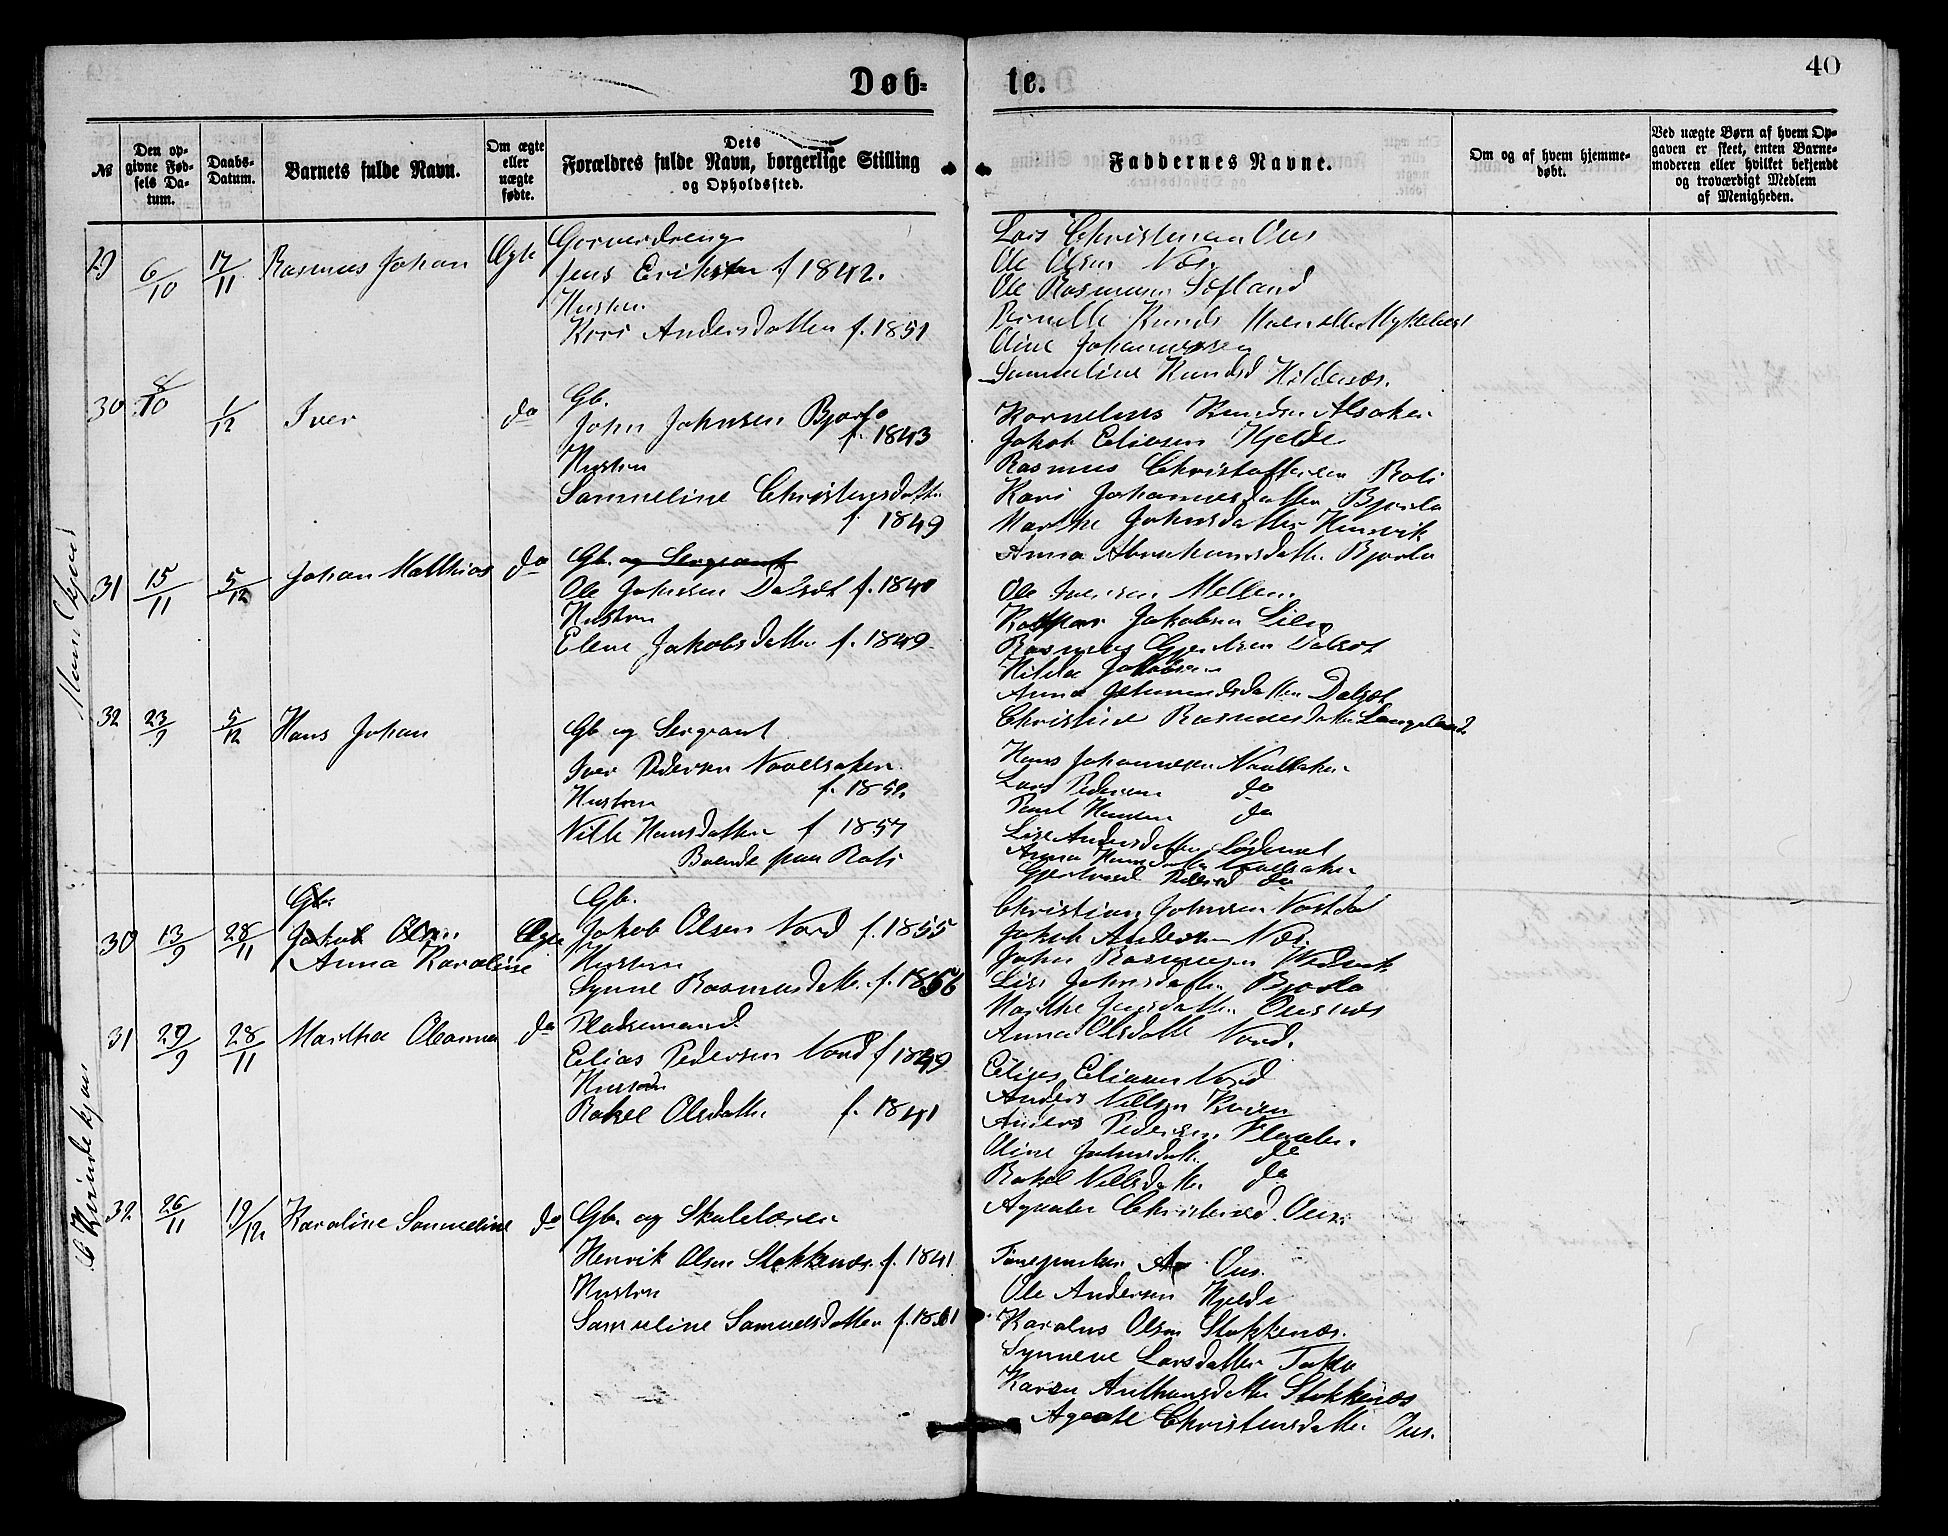 Døb-
te.
40
№
Den op-
givne Fød-
sels Da-
tum.
Daabs-
Datum.
Barnets fulde Navn.
Om ægte
eller
uægte
fødte.
Dets
Forældres fulde Navn, borgerlige Stilling
og Opholdssted.
Faddernes Navne.
Om og af hvem hjemme-
døbt.
Ved uægte Børn af hvem Op-
gaven er skeet, enten Barne-
moderen eller hvilket bekjendt
og troværdigt Medlem
af Menigheden.
29 6/10 17/11 Rasmus Johan Ægte
Jens Eriksen f 1842.
Hustru
Andersdatter f. 1851
Lars Christensen Ous
Ole Olsen Næs.
Ole Rasmusen
Pernille Knuds
Oline Johannessen
Samueline Knudsd Hildenæs.
30 8/10 1/12 Iver do
Gb.
John Johnsen Bjørlo
f. 1843
Hustru
Sammeline Christensdatter
f. 1849
Kornelius Knudsen Alsaker
Jakob Eliasen Hjelde
Rasmus Christoffersen Roti
Kari Johannesdatter Bjørlo
Marthe Johnsdatter Hennvik
Anna Abrahamsdatter Bjørlo
31 15/11 5/12 Johan Matthias do
Gb. og Sergeant
Ole Johnsen Dalsæt f. 1840
Hustru
Elene Jakobsdatter f. 1849.
Ole Iversen Mellem
Kaspar Jakobsen Lien
Rasmus Gjertsen Dalsæt
Hilda Jakobsen
Anna Dalsæt
Christine Rasmusdatter Langeland.
32 23/9 5/12 Hans Johan
Gb og Sergeant
Iver Pedersen Navelsaker
Hustru
Nille Hansdatter f 1857
Boende paa Roti
Hans Johannesen Navelsaker
Lars Pedersen do
Paul Hansen do
Lise Andersdatter
Anna Hansdatter Navelsaker
Pedersd do
Mandkjøn
30 13/9 28/11
Gb.
Jakob Olsen
Anna Karoline
Ægte
Gb.
Jakob Olsen Nord f. 1855
Hustru
Synne Rasmusdatter f. 1856
Christian Johnsen Nestdal
Jakob Andersen Næs.
John Rasmusen
Lise Johnsdatter Bjørlo
Marthe Jensdatter Ousnæs
Anna Olsdatter Nord.
31 29/9 28/11 Martha Oleanna do
Pladsmand
Elias Pedersen Nord f 1849
Hustru
Rakel Olsdatter f. 1841
Elias Eliasen Nord
Anders Nilsen
Anders Pedersen
Oline Johnsdatter do
Rakel Nilsdatter do
Agnete Christensd. Ous.
Qvindekjøn
32 26/11 19/12 Karoline Samueline do
Gb. og Skolelærer
Henrik Olsen Stokkenæs. f. 1841
Hustru
Samueline Samuelsdatter f. 1861
Ous.
Ole Andersen Hjelde
Karolus Olsen Stokkenæs.
Synneve Larsdatter
Karen Anthonsdatter Stokkenæs
Agnete Christensdatter Ous.